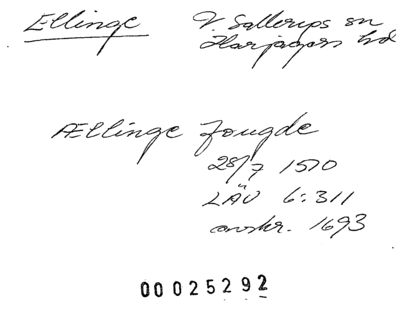 Ellinge V Sallerups sn
Harjagers hd
Ællinge fougde
28/7 1570
LÄU 6:311
avskr. 1693
00025292